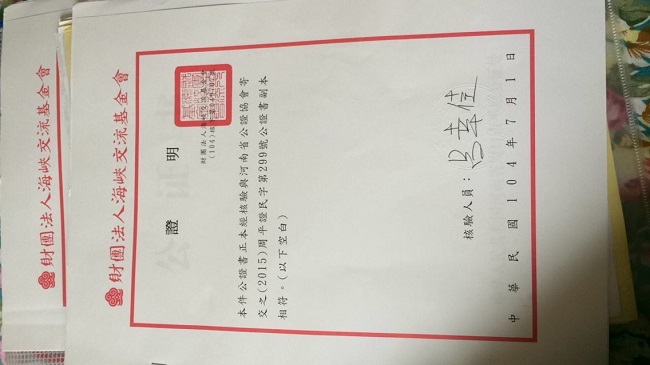 財團法人海峽交流基金會
財團法人海峽交流基金會
證明
財團法人海峽交流基金會
(104)核
本件公證書正本經核驗與河南省公證協會寄
交之(2015)周平證民字第299號公證書副本
相符。(以下空白)
核驗人員:
中華民國104年7月1日